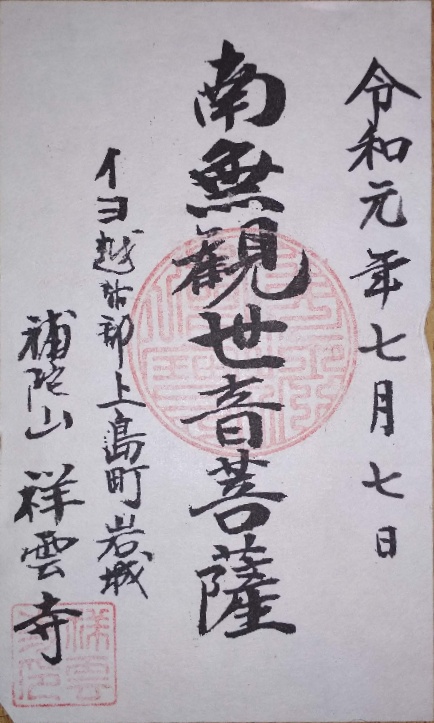 令和元年七月七日
南無観世音菩薩
イヨ越智郡上島町岩城
補陀山 祥雲寺